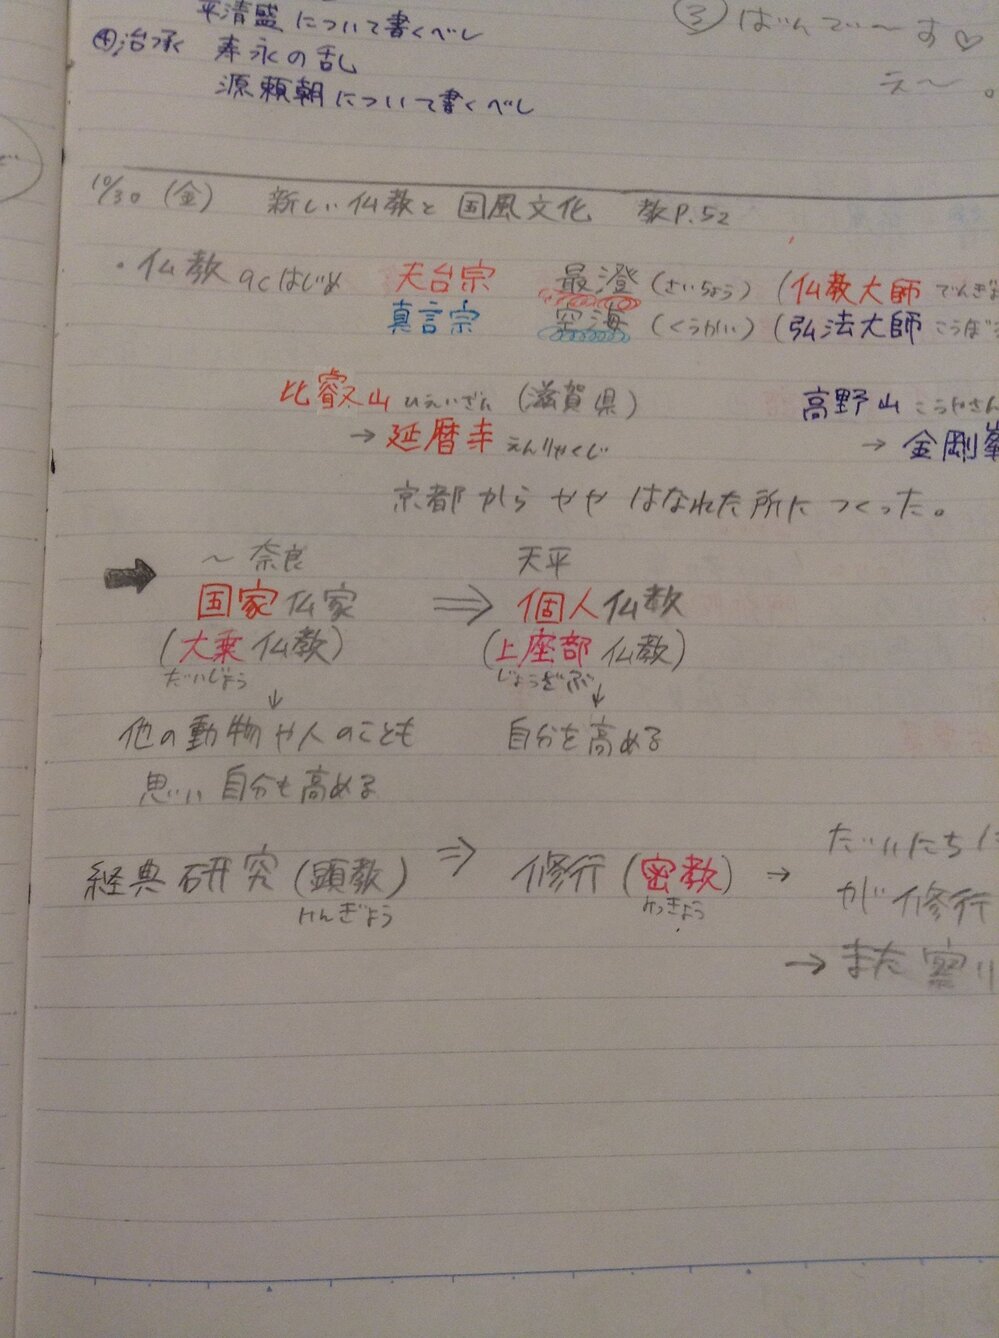 平清盛について書くべし
④治承 寿永の乱
源頼朝について書くべし
③ばんで〜す♡
え〜。
10/30(金) 新しい仏教と国風文化 教P.52
・仏教 9cはじめ 天台宗 最澄(さいちょう)(仏教大師 でんぎょ
真言宗 空海(くうかい)(弘法大師 こうぼう
比叡山 ひえいざん (滋賀県) 高野山 こうやさん
→延暦寺 えんりゃくじ →金剛峯
京都からやや はなれた所につくった。
➡ 〜奈良 天平
国家仏家 ⇒ 個人仏教
(大乗仏教) (上座部仏教)
だいじょう じょうざぶ
↓ ↓
他の動物や人のことも 自分を高める
思い 自分も高める
経典研究(顕教) ⇒ 修行(密教) → だいたち
けんぎょう みっきょう が修行
→また密